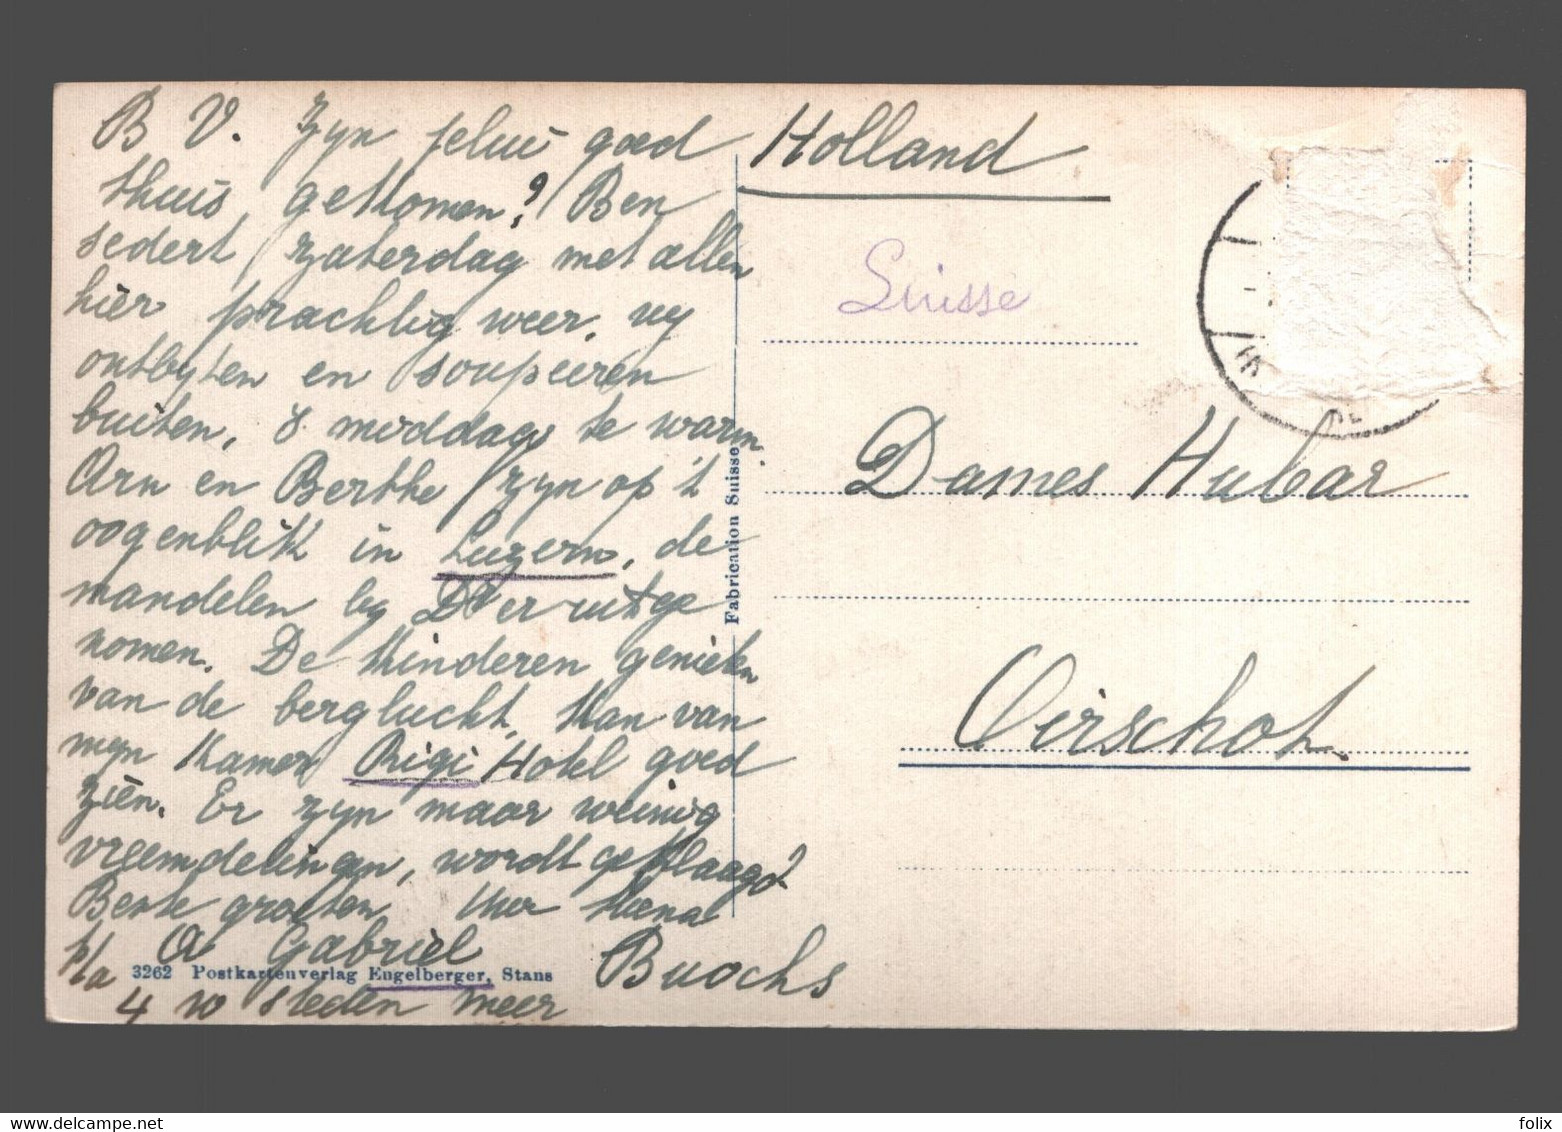 B V. Zyn jelui goed
thuis gekomen? Ben
sedert zaterdag met allen
hier prachtig weer, wy
ontbyten en soupeeren
buiten, s middags te warm.
Arn en Berthe zyn op 't
oogenblik in Luzern, de
mandelen by Dr er uitge
nomen. De kinderen genieten
van de berglucht, kan van
myn kamer Rigi Hotel goed
zien. Er zyn maar weinig
vreemdelingen, wordt geklaagd
Beste groeten
p/a A Gabriel Buochs
4 w steden meer
3262 Postkartenverlag Engelberger, Stans
Fabrication Suisse
Holland
Suisse
Dames Hubar
Oirschot.